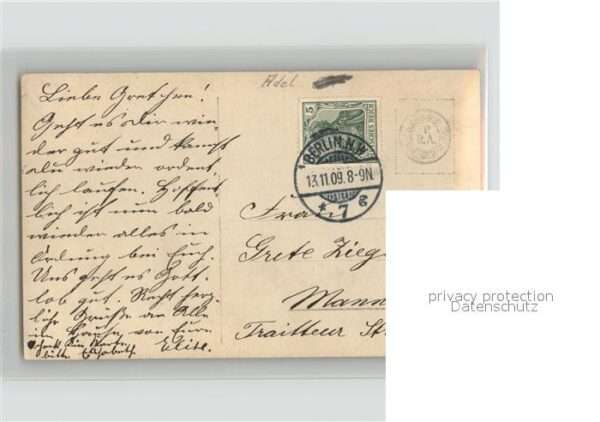 Adel
Liebe Gretchen!
Geht es Dir wie-
der gut und kannst
du wieder ordent-
lich laufen. Hoffent-
lich ist nun bald
wieder alles in
Ordnung bei Euch.
Uns geht es Gott-
lob gut. Recht herz-
liche Grüße an Alle
im Hause, von Eure
bitte Elisabeth Elise.
5
DEUTSCHES REICH
BERLIN.N.W.
13.11.09.8-9N.
* 7 g
Frau
Grete Zieg
Mann
Traitteur St
privacy protection
Datenschutz